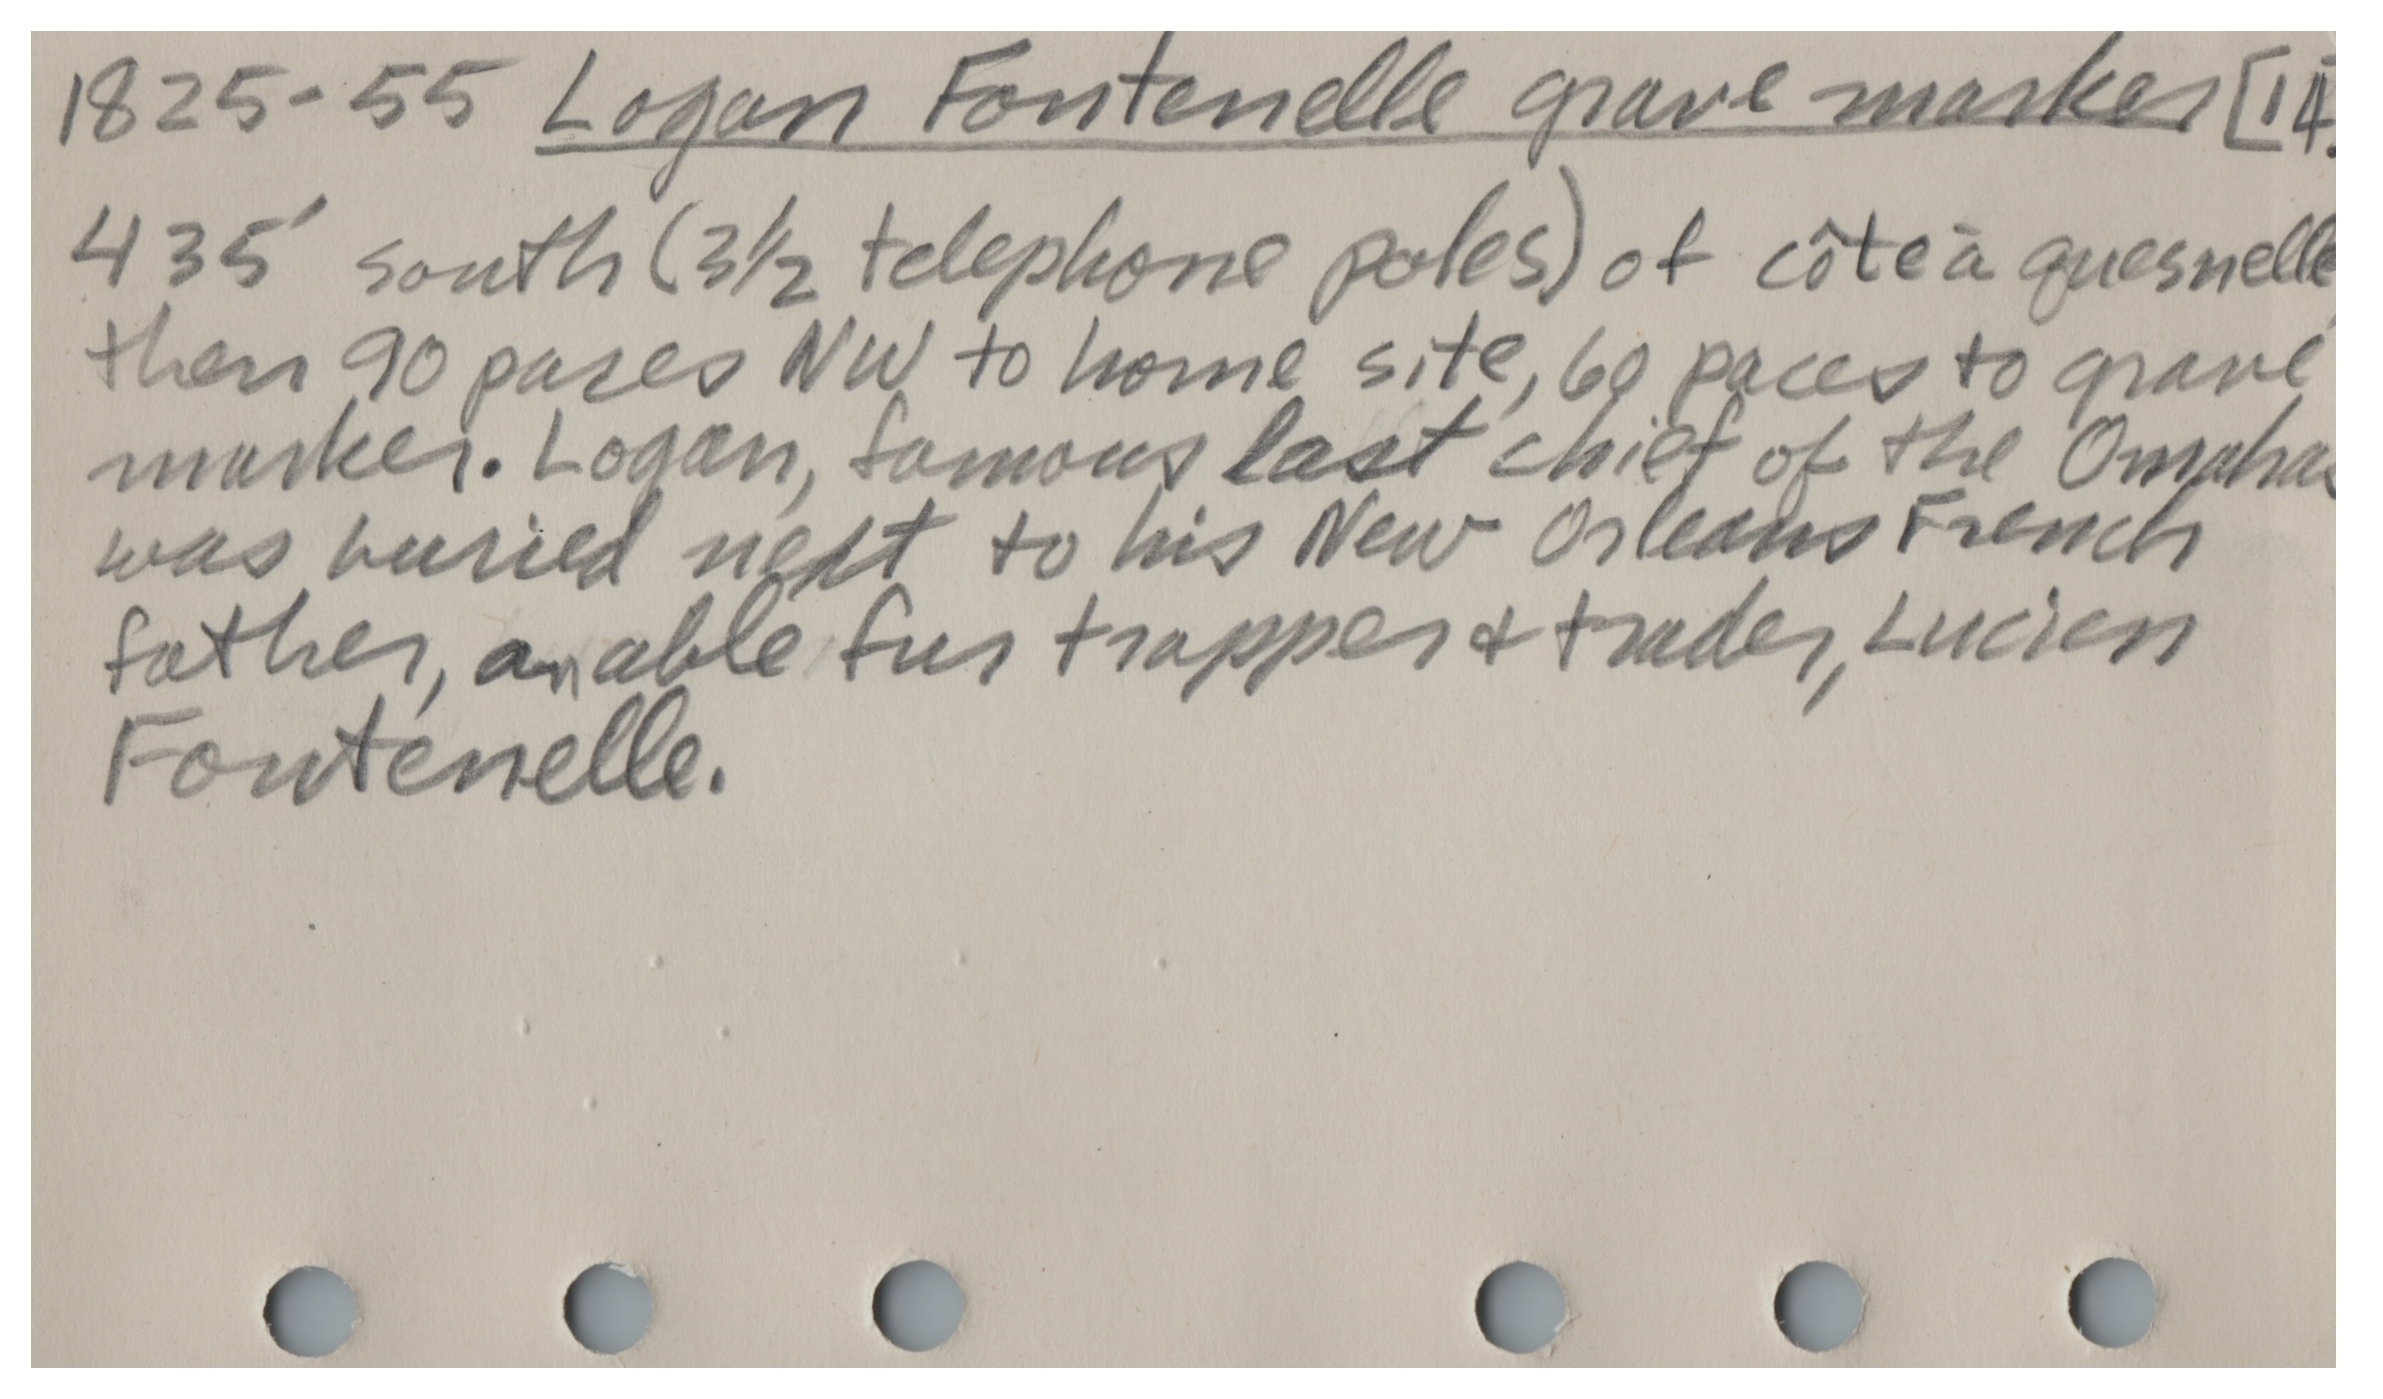 1825-55 Logan Fontenelle grave marker [14.
435' south (3½ telephone poles) of côte à quesnelle,
then 90 paces NW to home site, 60 paces to grave
marker. Logan, famous last chief of the Omahas
was buried next to his New Orleans French
father, an able fur trapper & trader, Lucien
Fontenelle.